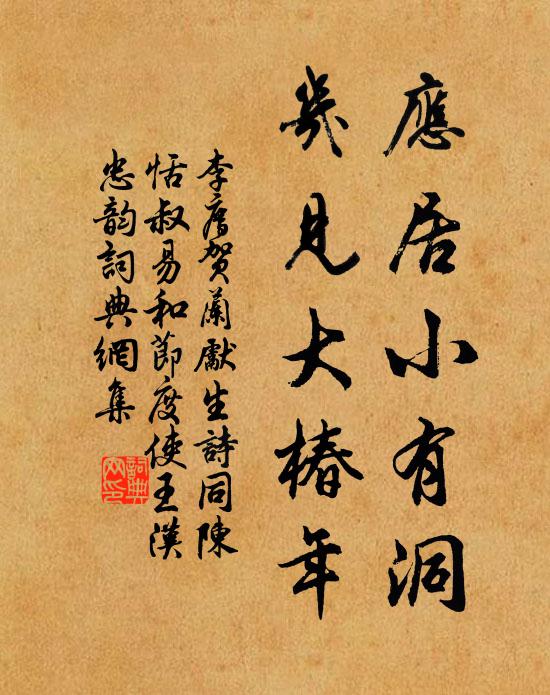 應居小有洞
幾見大椿年
李廌賀蘭獻生詩同陳
恬叔易和節度使王漢
忠韵詞典網集
詞典网印